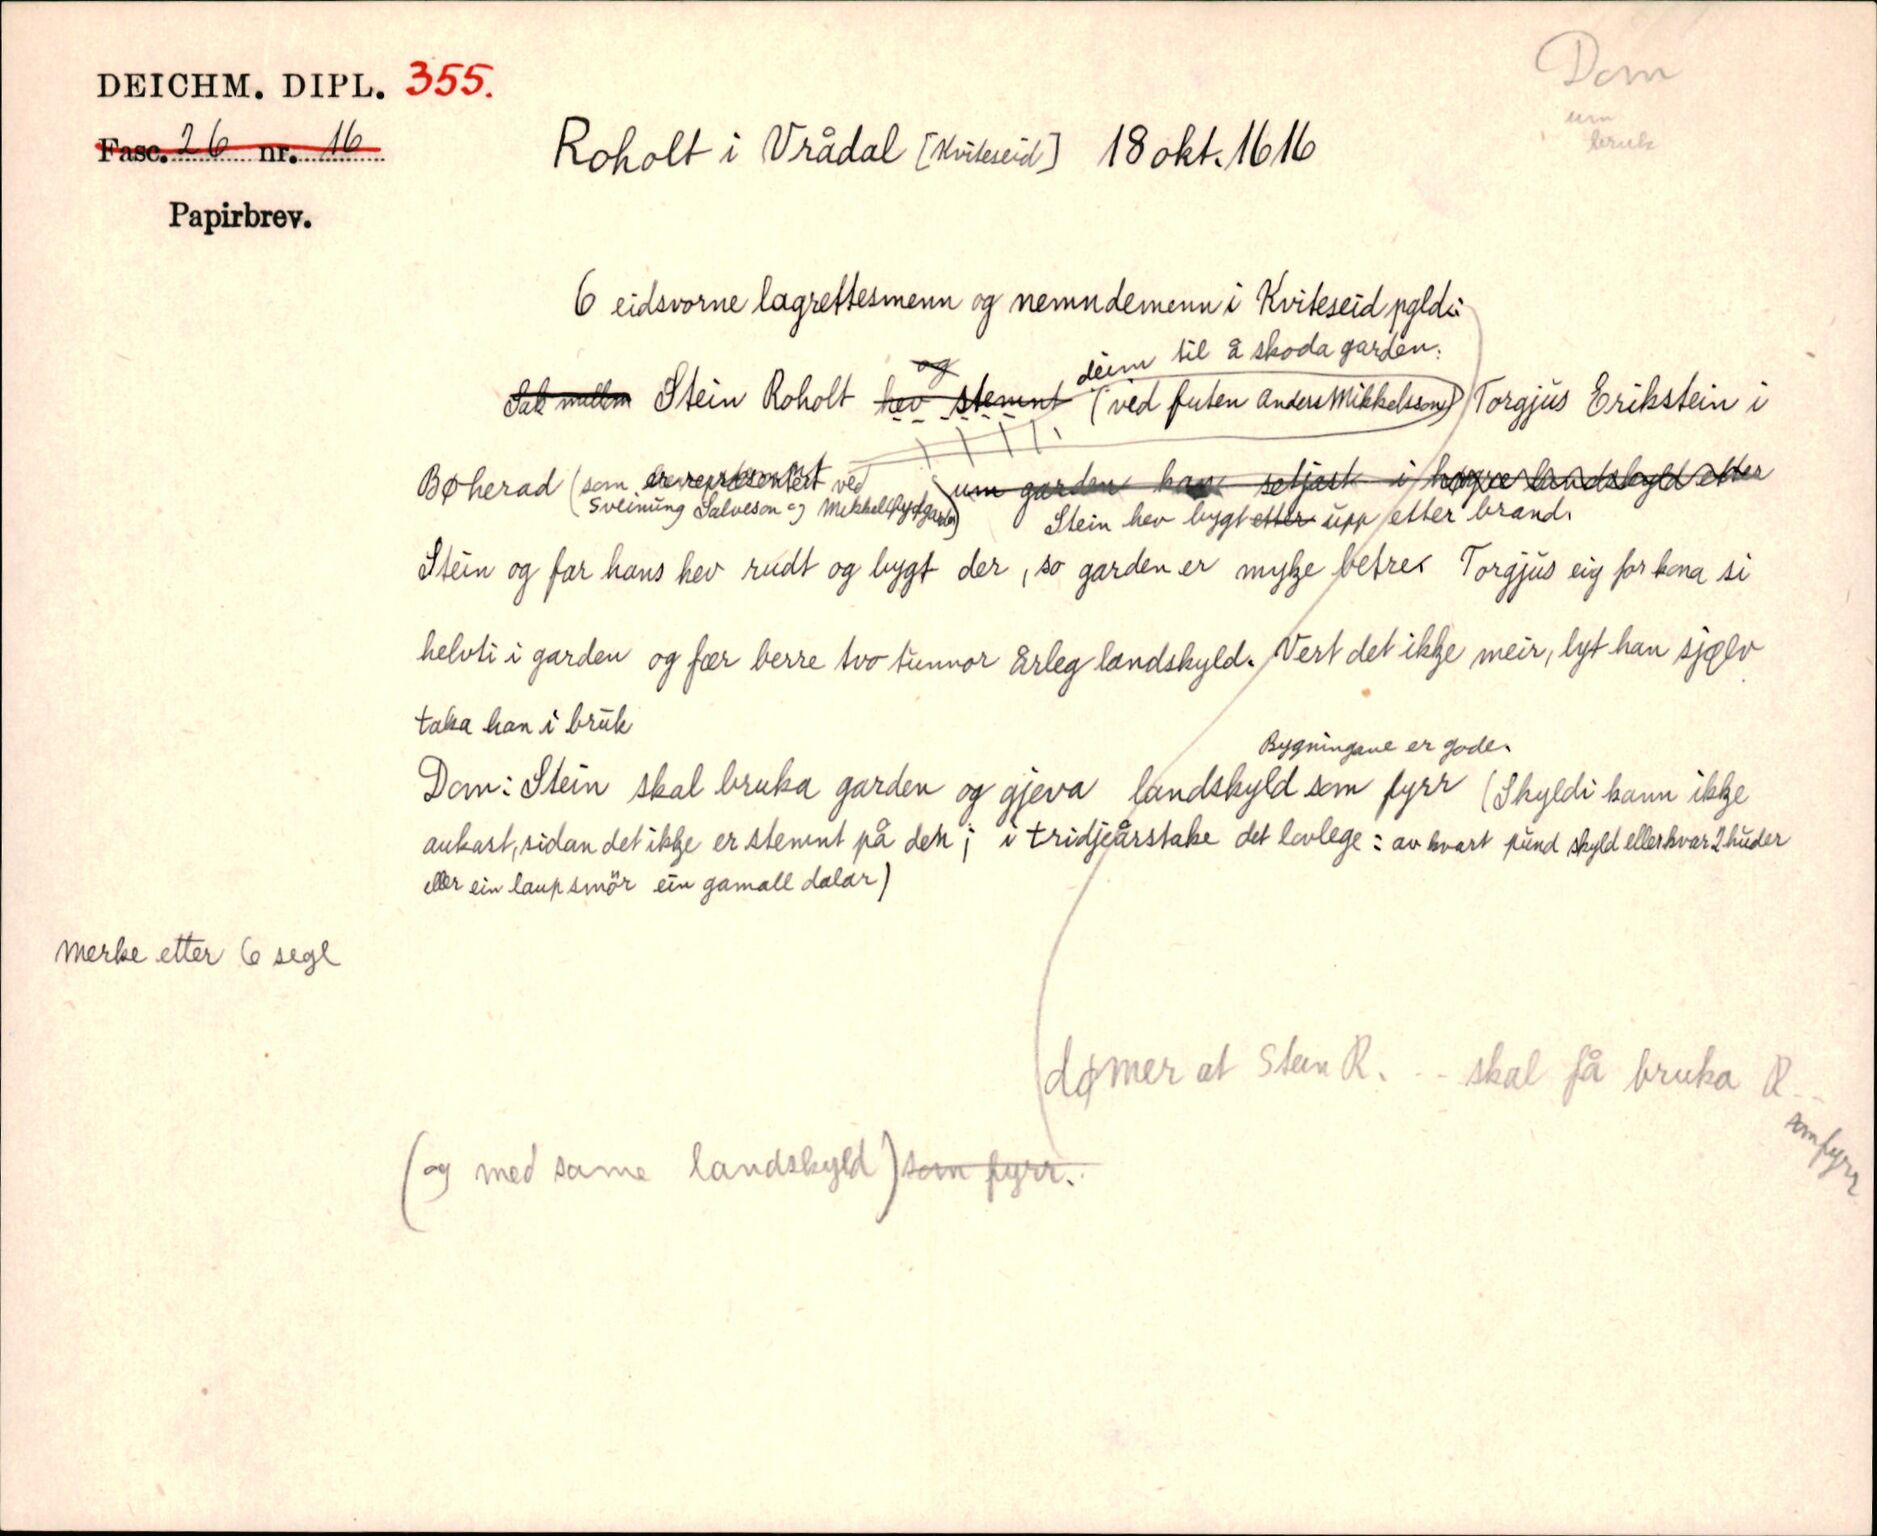 DEICHM. DIPL. 355.
Fasc. 26 nr. 16
Papirbrev.
Dom
um
bruk
Roholt i Vrådal [Kviteseid] 18 okt. 1616
6 eidsvorne lagrettesmenn og nemndemenn i Kviteseid pgld:
og deim til å skoda garden.
Sak millom Stein Roholt hev stemnt (ved futen Anders Mikkelsson) Torgjus Erikstein i
Bøherad (som er representert ved um garden han setjast i høgre landskyld etter
Sveinung Salveson og Mikkel Stein hev bygt etter upp etter brand.
Stein og far hans hev rudt og bygt der, so garden er mykje betre. Torgjus eig for kona si
helvti i garden og fær berre tvo tunnor årleg landskyld. Vert det ikkje meir, lyt han sjølv
taka han i bruk
Bygningane er gode.
Dom: Stein skal bruka garden og gjeva landskyld som fyrr (Skyldi kann ikkje
aukast, sidan det ikkje er stemnt på den; i tridjeårstake det lovlege: av kvart pund skyld eller kvar 2 huder
eller ein laup smör ein gamall dalar)
Merke etter 6 segl
dømer at Stein R. -- skal få bruka R --
som fyrr
(og med same landskyld) som fyrr.